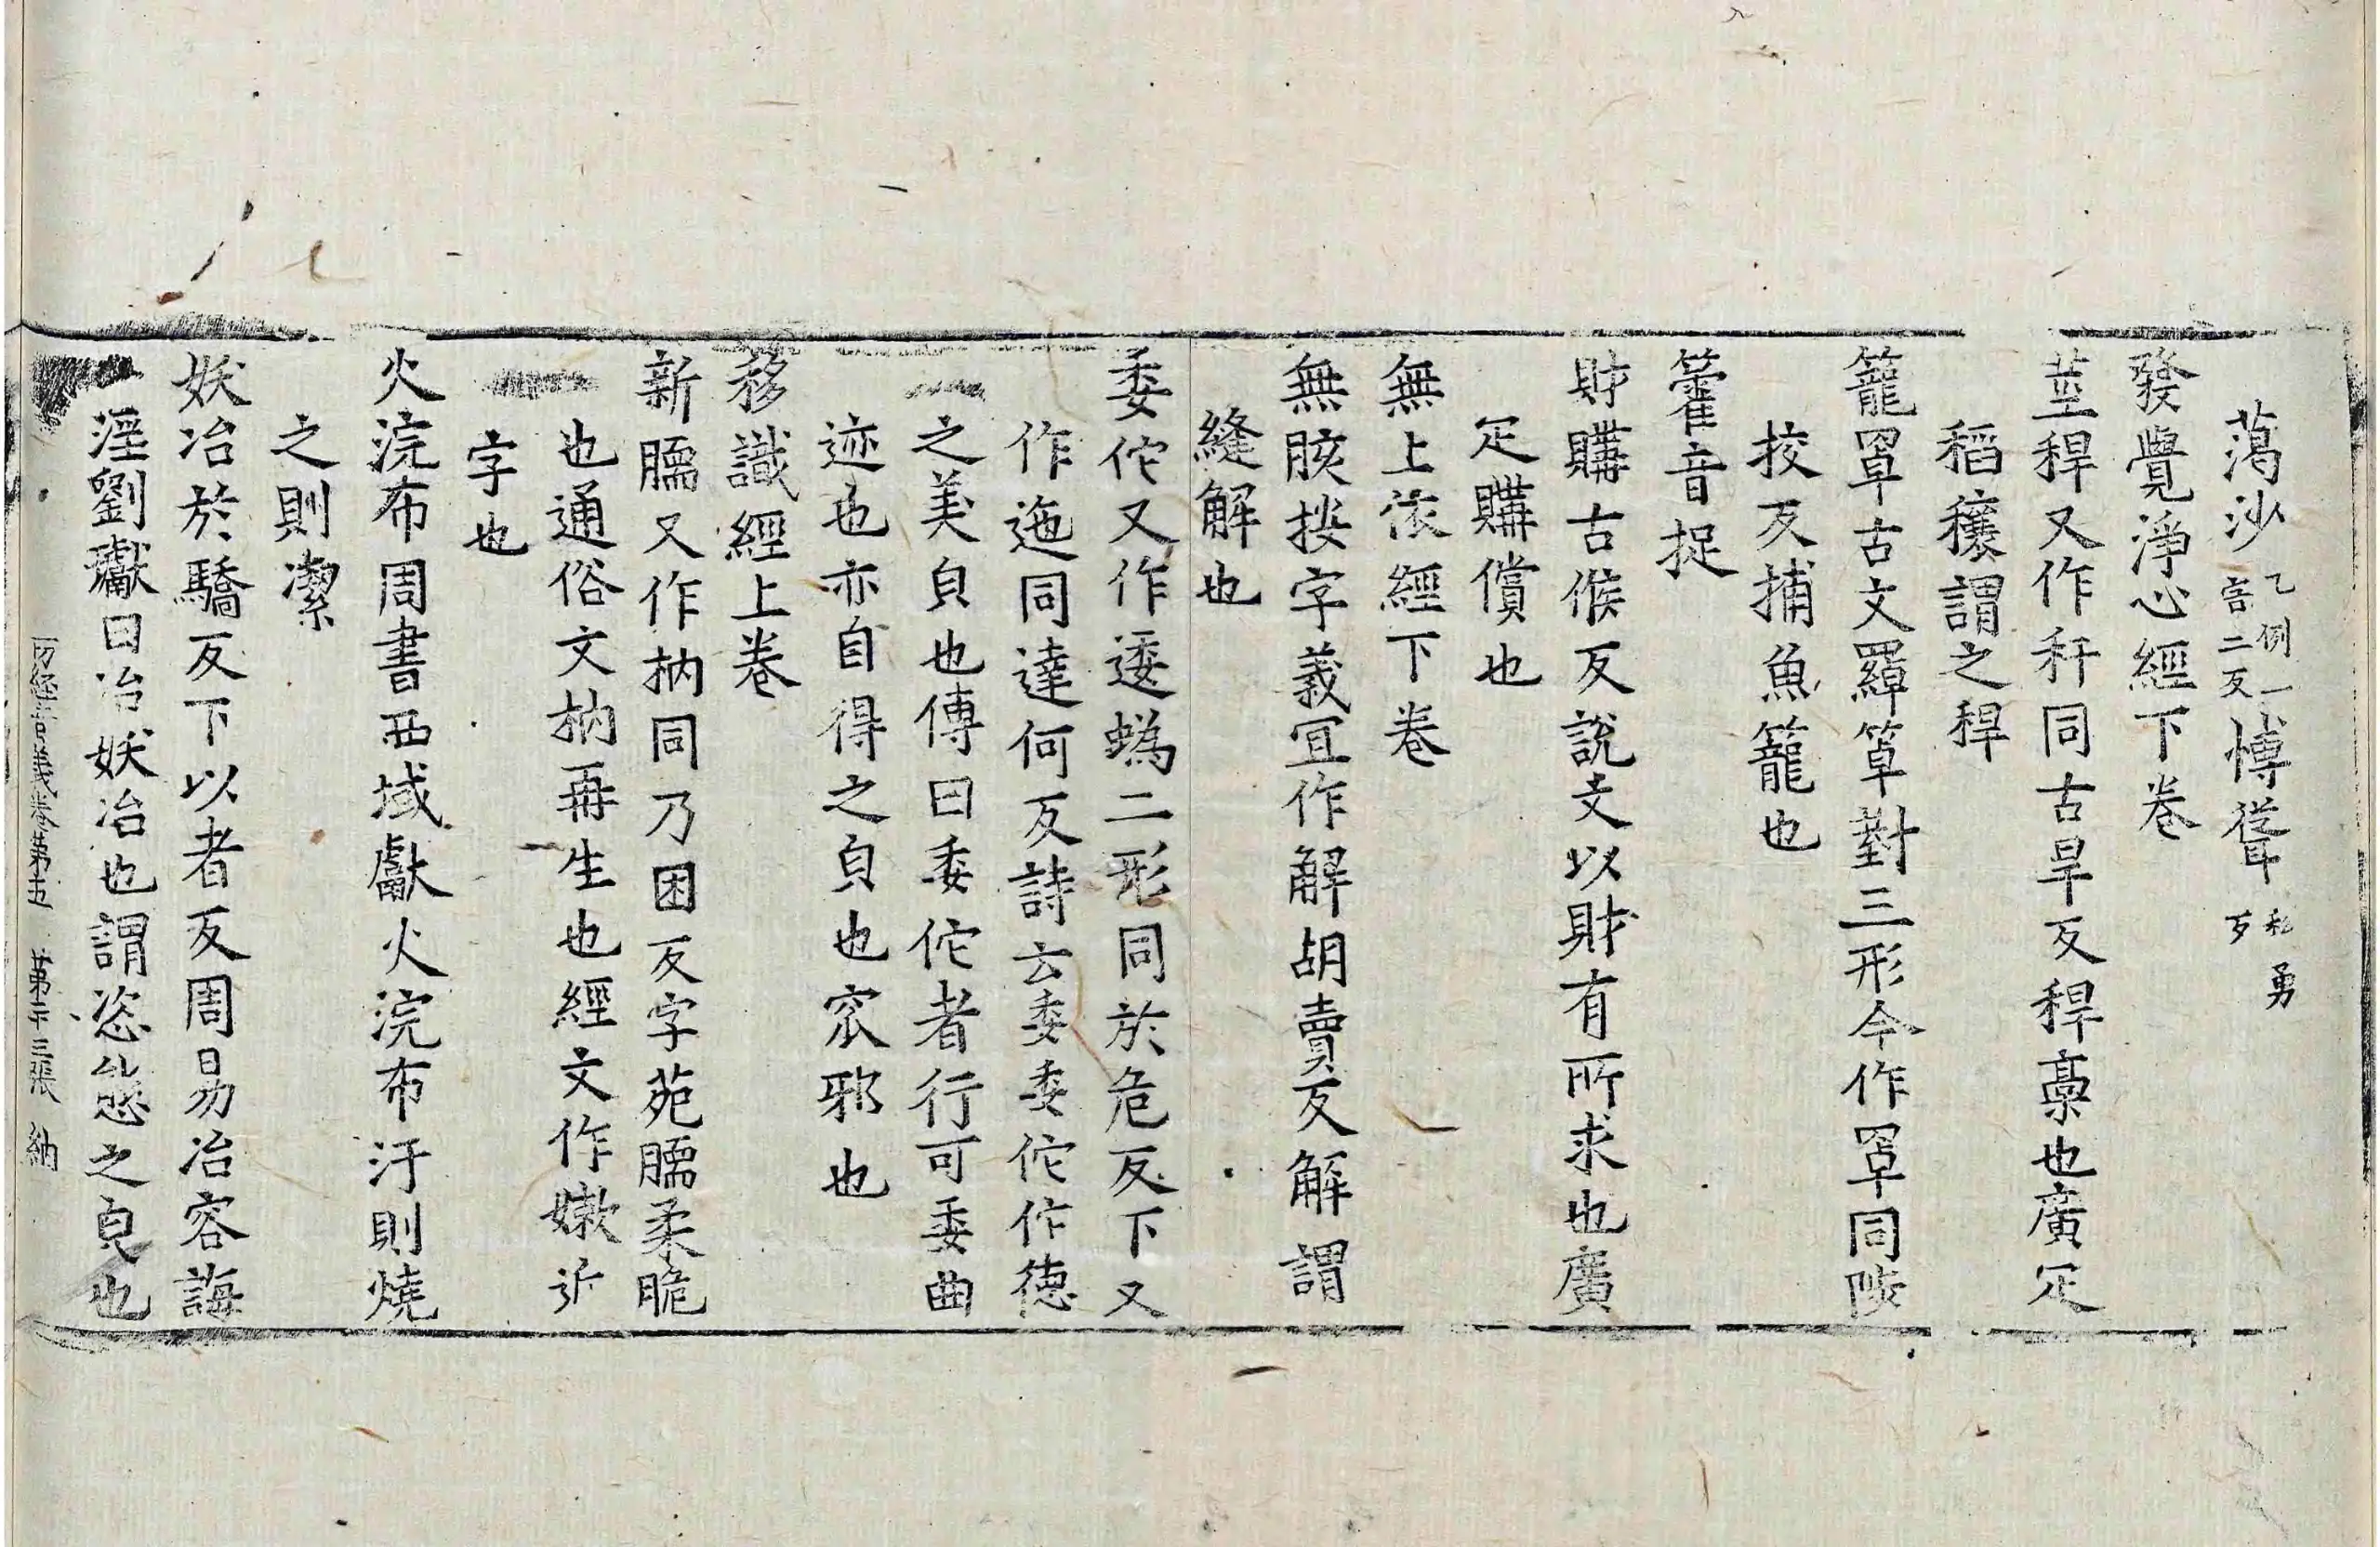 藹沙乙例一音二反博聳私勇反
發覺淨心經下卷
莖稈又作秆同古旱反稈稾也廣疋
稻穰謂之稈
籠罩古文羄箄䈇三形今作罩同陟
挍反捕魚籠也
籗音捉
財購古候反說文以財有所求也廣
疋購償也
無上依經下卷
無胲按字義宜作解胡賣反解謂
縫解也
委佗又作逶蜲二形同於危反下又
作迤同達何反詩云委委佗佗作德
之美皃也傳曰委佗者行可委曲
迹也亦自得之皃也宨邪也
移識經上卷
新臑又作枘同乃困反字苑臑柔脆
也通俗文枘再生也經文作嫩近
字也
火浣布周書西域獻火浣布汙則燒
之則潔
妖冶於驕反下以者反周易冶容誨
淫劉瓛曰冶妖冶也謂恣態之皃也
一切經音義卷第五 第二十三張 納